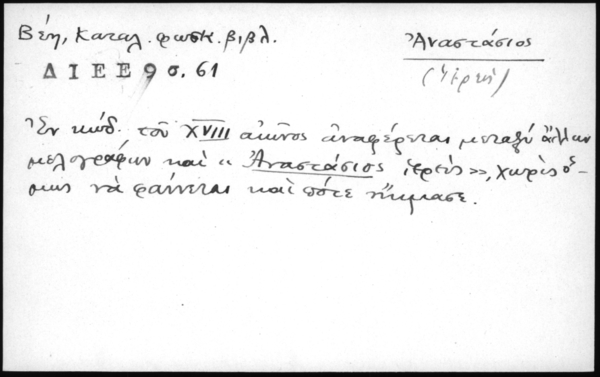 Βέη, Καταλ. φωσκ. βιβλ.
ΔΙΕΕ 9 σ. 61
Ἀναστάσιος
(Ἱερεύς)
Ἐν κώδ. τοῦ XVIII αἰῶνος ἀναφέρεται μεταξὺ ἄλλων
μελογράφων καὶ «Ἀναστάσιος ἱερεύς», χωρὶς ὅ-
μως νὰ φαίνεται καὶ πότε ἤκμασε.